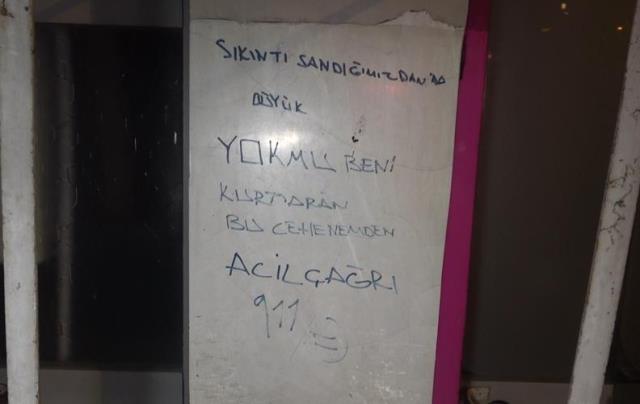 SIKINTI SANDIĞIMIZDAN DA
BÜYÜK
YOKMU BENİ
KURTARAN
BU CEHENEMDEN
ACİL ÇAĞRI
911